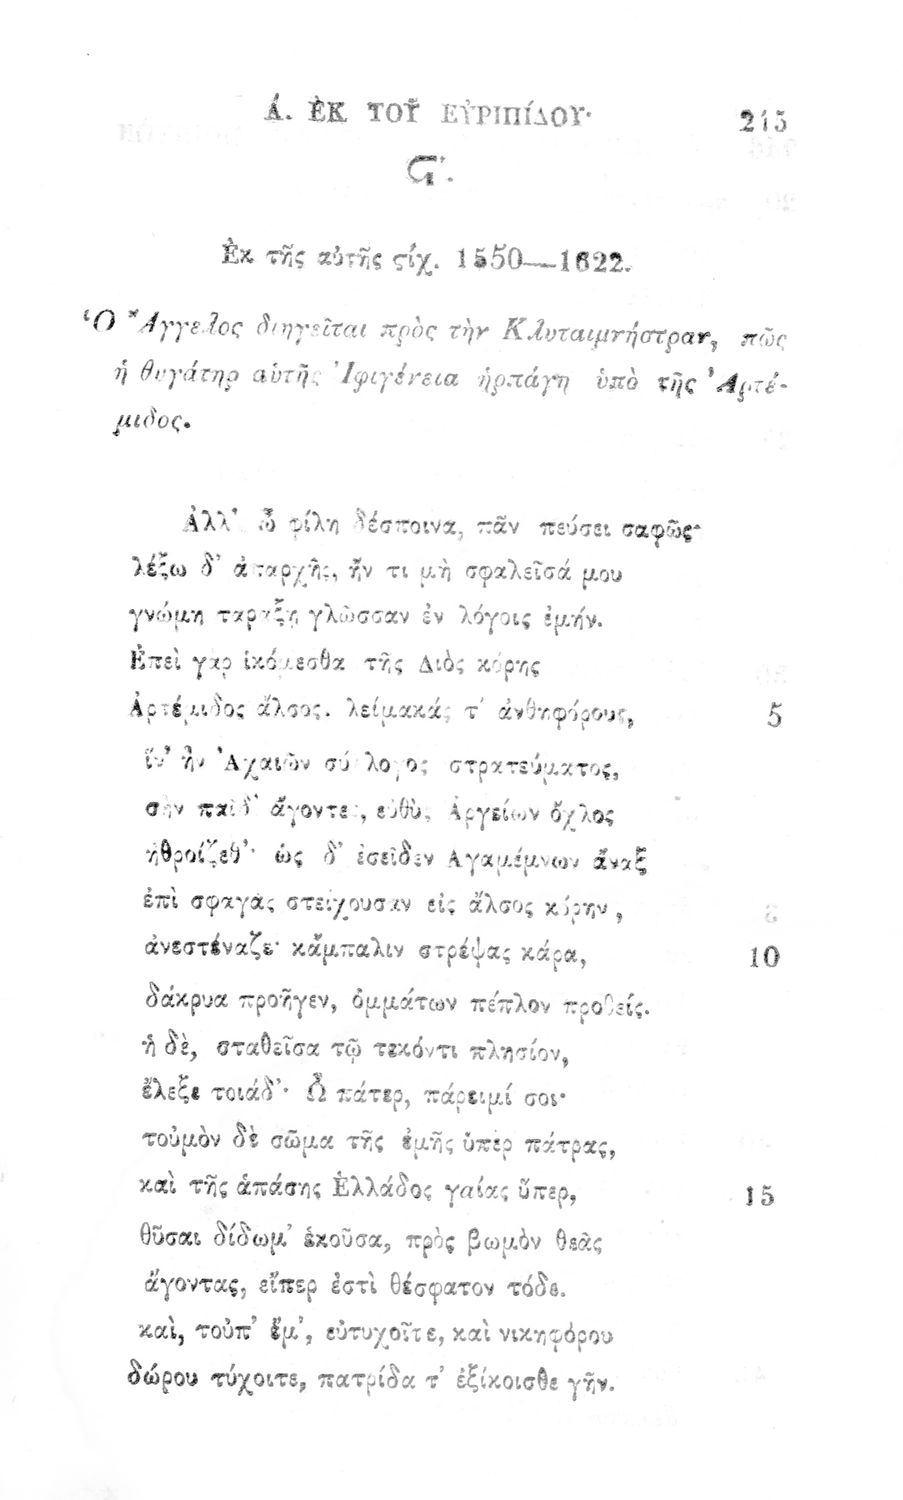 Α. ἘΚ ΤΟΥ͂ ΕΥ̓ΡΙΠΊΔΟΥ· 215
Ϛ'.
Ἐκ τῆς αὐτῆς ϛίχ. 1550—1622.
Ὁ Ἄγγελος διηγεῖται πρὸς τὴν Κλυταιμνήστραν, πῶς
ἡ θυγάτηρ αὑτῆς Ἰφιγένεια ἡρπάγη ὑπὸ τῆς Ἀρτέ-
μιδος.
Ἀλλ' ὦ φίλη δέσποινα, πᾶν πεύσει σαφῶς·
λέξω δ' ἀπαρχῆς, ἤν τι μὴ σφαλεῖσά μου
γνώμη ταραξῃ γλῶσσαν ἐν λόγοις ἐμήν.
Ἐπεὶ γὰρ ἱκόμεσθα τῆς Διὸς κόρης
Ἀρτέμιδος ἄλσος. λείμακάς τ' ἀνθηφόρους, 5
ἵν' ἦν Ἀχαιῶν σύλλογος στρατεύματος,
σὴν παῖδ' ἄγοντες, εὐθὺς Ἀργείων ὄχλος
ἠθροίζεθ'· ὡς δ' ἐσεῖδεν Ἀγαμέμνων ἄναξ
ἐπὶ σφαγὰς στείχουσαν εἰς ἄλσος κόρην,
ἀνεστέναζε· κἄμπαλιν στρέψας κάρα, 10
δάκρυα προῆγεν, ὀμμάτων πέπλον προθείς.
ἡ δὲ, σταθεῖσα τῷ τεκόντι πλησίον,
ἔλεξε τοιάδ'· Ὦ πάτερ, πάρειμί σοι·
τοὐμὸν δὲ σῶμα τῆς ἐμῆς ὑπὲρ πάτρας,
καὶ τῆς ἁπάσης Ἑλλάδος γαίας ὕπερ, 15
θῦσαι δίδωμ' ἑκοῦσα, πρὸς βωμὸν θεᾶς
ἄγοντας, εἴπερ ἐστὶ θέσφατον τόδε.
καὶ, τοὐπ' ἔμ', εὐτυχοῖτε, καὶ νικηφόρου
δώρου τύχοιτε, πατρίδα τ' ἐξίκοισθε γῆν.